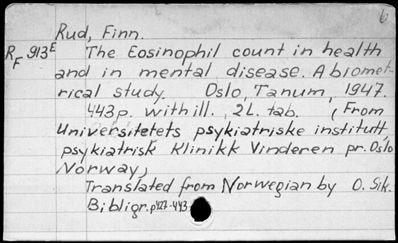 6
Rud, Finn.
RF 913E The Eosinophil count in health
and in mental disease. A biomet-
rical study. Oslo, Tanum, 1947.
443p. with ill., 2L. tab. (From
Universitetets psykiatriske institutt,
psykiatrisk Klinikk Vinderen pr. Oslo
Norway)
Translated from Norwegian by O. Sik.
Bibligr. p427-443